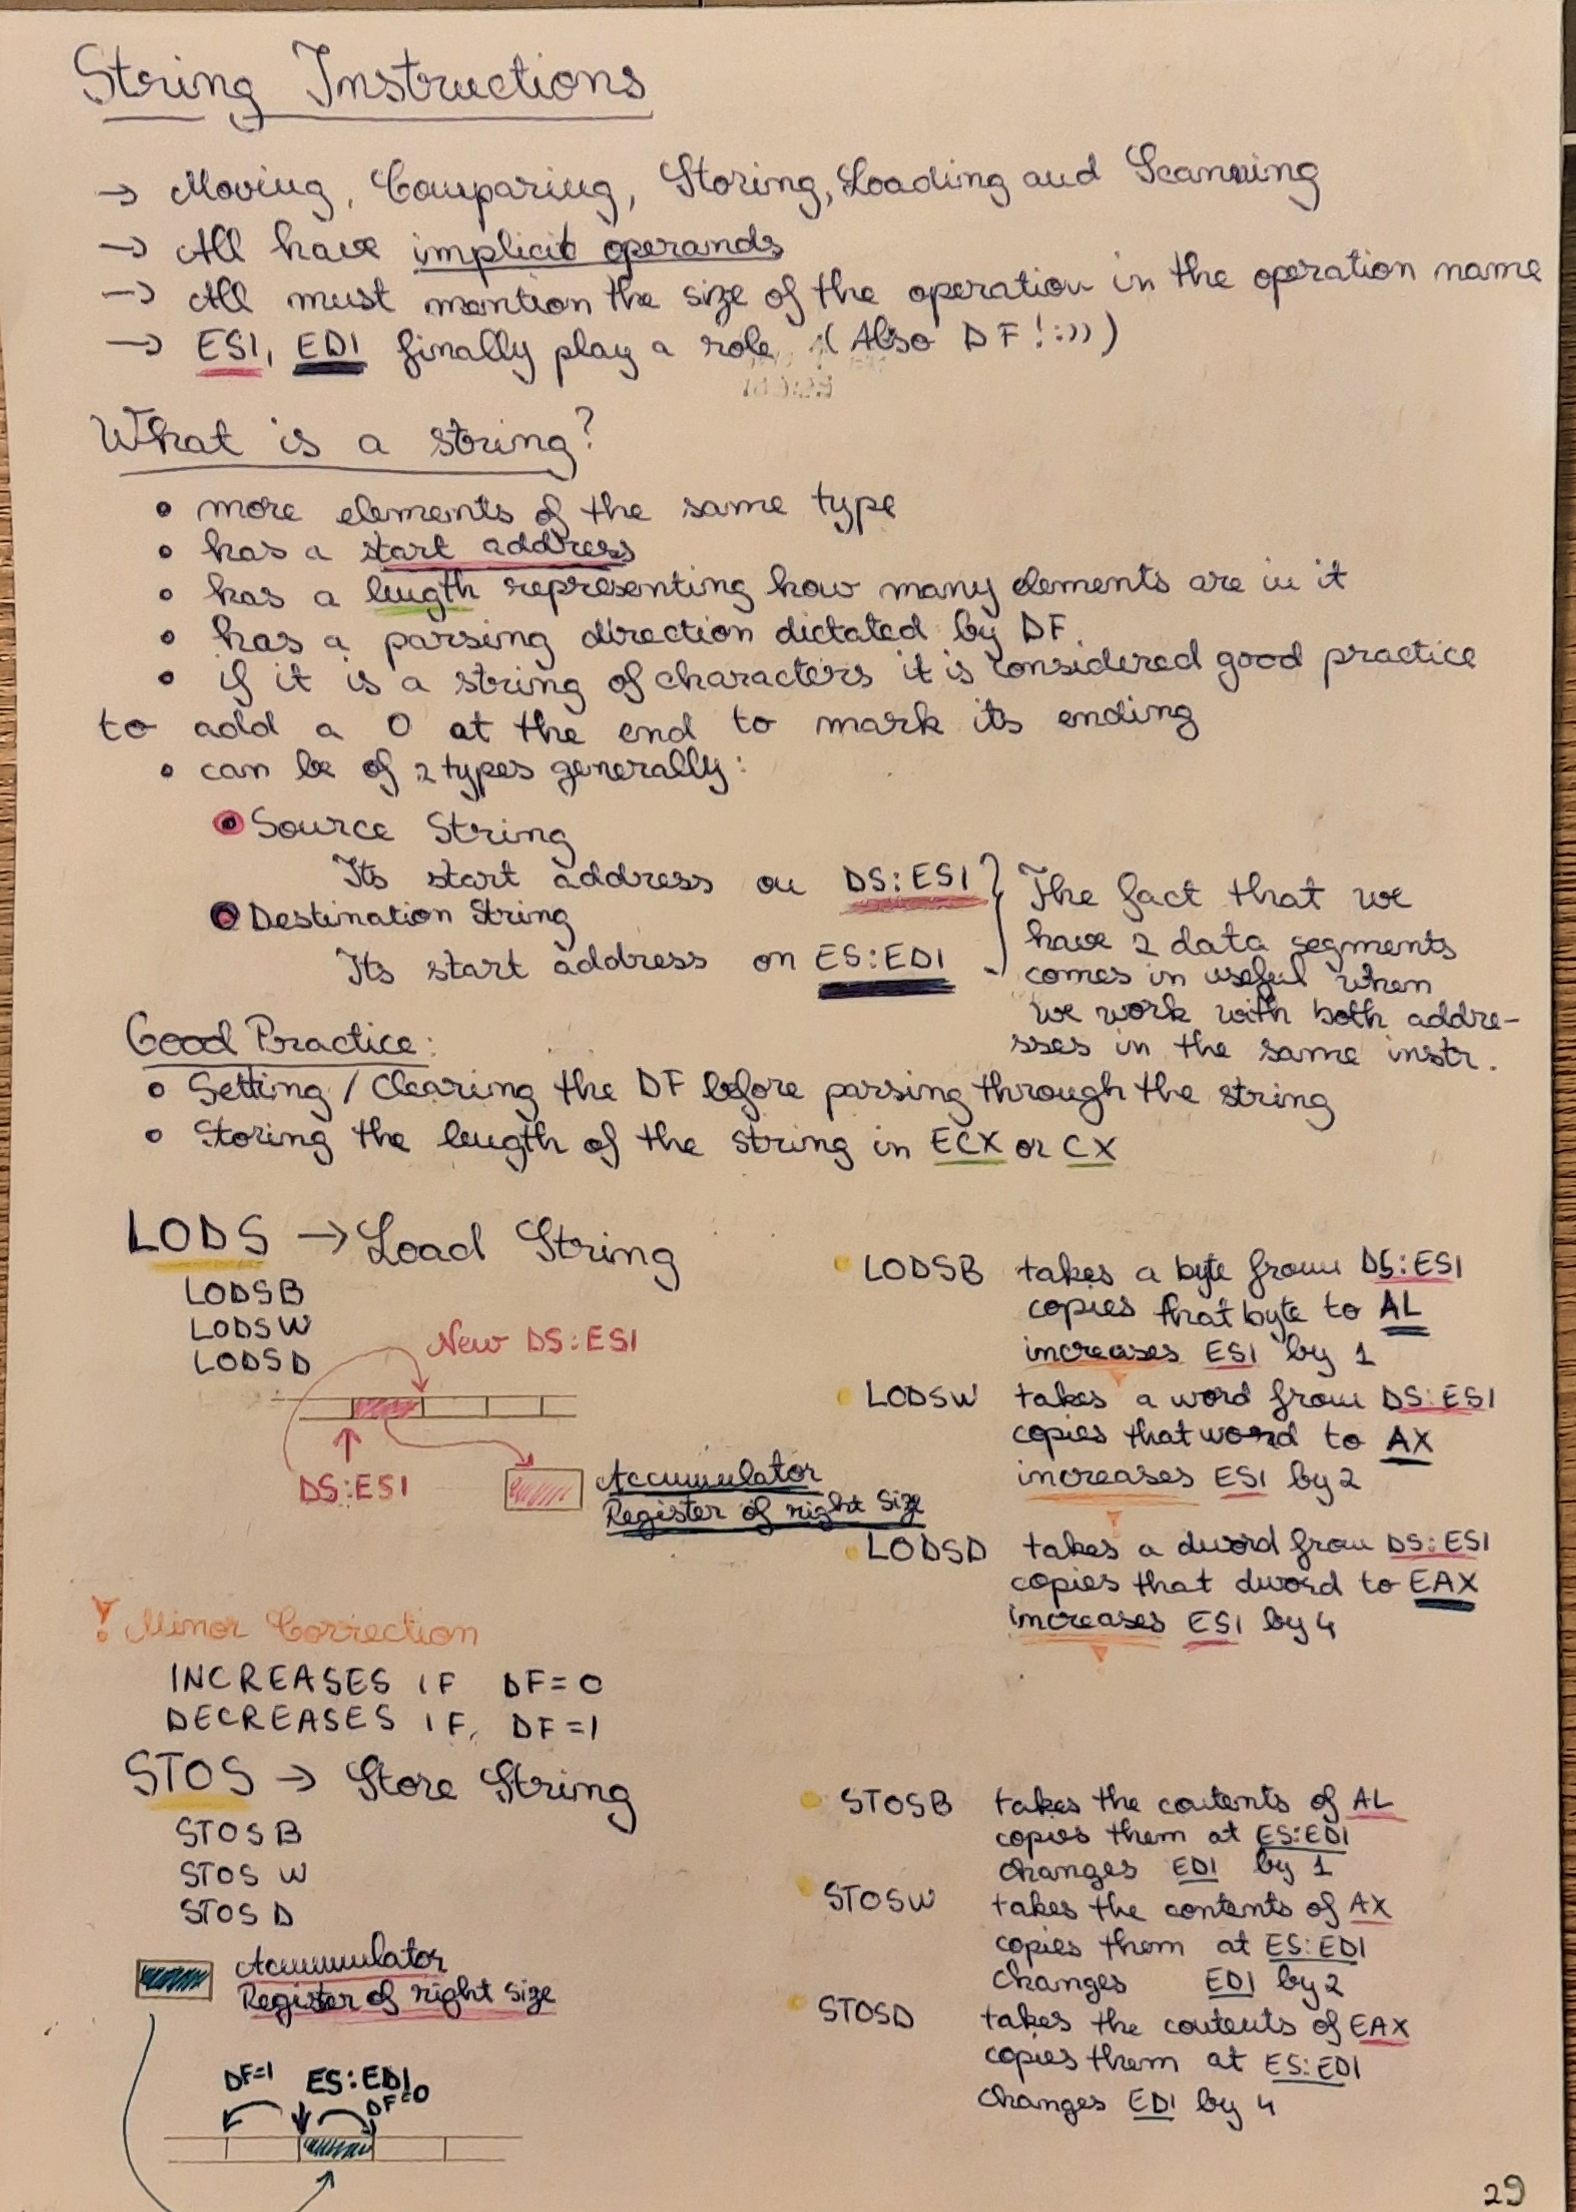 String Instructions
→ Moving, Comparing, Storing, Loading and Scanning
→ All have implicit operands
→ All must mention the size of the operation in the operation name
→ ESI, EDI finally play a role (Also DF!:)))
What is a string?
• more elements of the same type
• has a start address
• has a length representing how many elements are in it
• has a parsing direction dictated by DF.
• if it is a string of characters it is considered good practice
to add a 0 at the end to mark its ending
• can be of 2 types generally:
• Source String
Its start address on DS:ESI
• Destination String
Its start address on ES:EDI
The fact that we
have 2 data segments
comes in useful when
we work with both addre-
sses in the same instr.
Good Practice:
• Setting / Clearing the DF before parsing through the string
• Storing the length of the string in ECX or CX
LODS → Load String
LODSB
LODSW
LODSD
New DS:ESI
DS:ESI
Accumulator
Register of right size
• LODSB takes a byte from DS:ESI
copies that byte to AL
increases ESI by 1
• LODSW takes a word from DS:ESI
copies that word to AX
increases ESI by 2
• LODSD takes a dword from DS:ESI
copies that dword to EAX
increases ESI by 4
! Minor Correction
INCREASES IF DF=0
DECREASES IF DF=1
STOS → Store String
STOSB
STOSW
STOSD
Accumulator
Register of right size
DF=1 ES:EDI
DF=0
• STOSB takes the contents of AL
copies them at ES:EDI
changes EDI by 1
• STOSW takes the contents of AX
copies them at ES:EDI
changes EDI by 2
• STOSD takes the contents of EAX
copies them at ES:EDI
changes EDI by 4
29